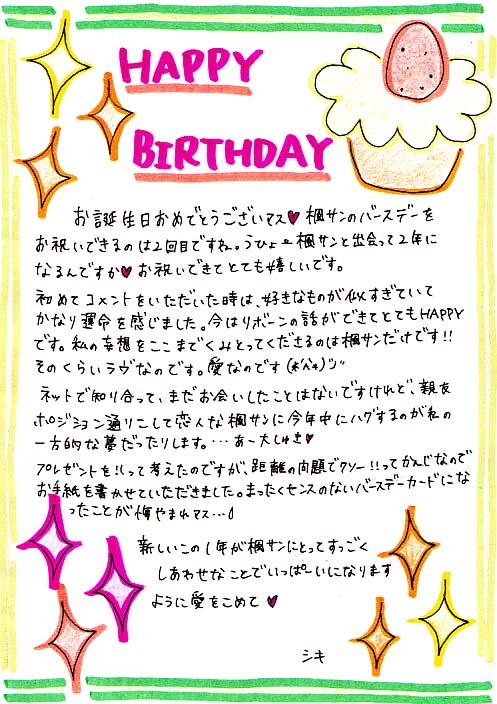 HAPPY
BIRTHDAY
お誕生日おめでとうございマス♥楓サンのバースデーを
お祝いできるのは2回目ですね。うひょー楓サンと出会って2年に
なるんですか♥お祝いできてとても嬉しいです。
初めてコメントをいただいた時は、好きなものが似すぎていて
かなり運命を感じました。今はリボーンの話ができてとてもHAPPY
です。私の妄想をここまでくみとってくださるのは楓サンだけです!!
そのくらいラヴなのです。愛なのです
ネットで知り合って、まだお会いしたことはないですけれど、親友
ポジション通りこして恋人な楓サンに今年中にハグするのが私の
一方的な夢だったりします。…あー大しゅき♥
プレゼントを!!って考えたのですが、距離の問題でクソー!!ってかんじなので
お手紙を書かせていただきました。まったくセンスのないバースデーカードにな
ったことが悔やまれマス…
新しいこの1年が楓サンにとってすっごく
しあわせなことでいっぱーいになります
ように愛をこめて♥
シキ